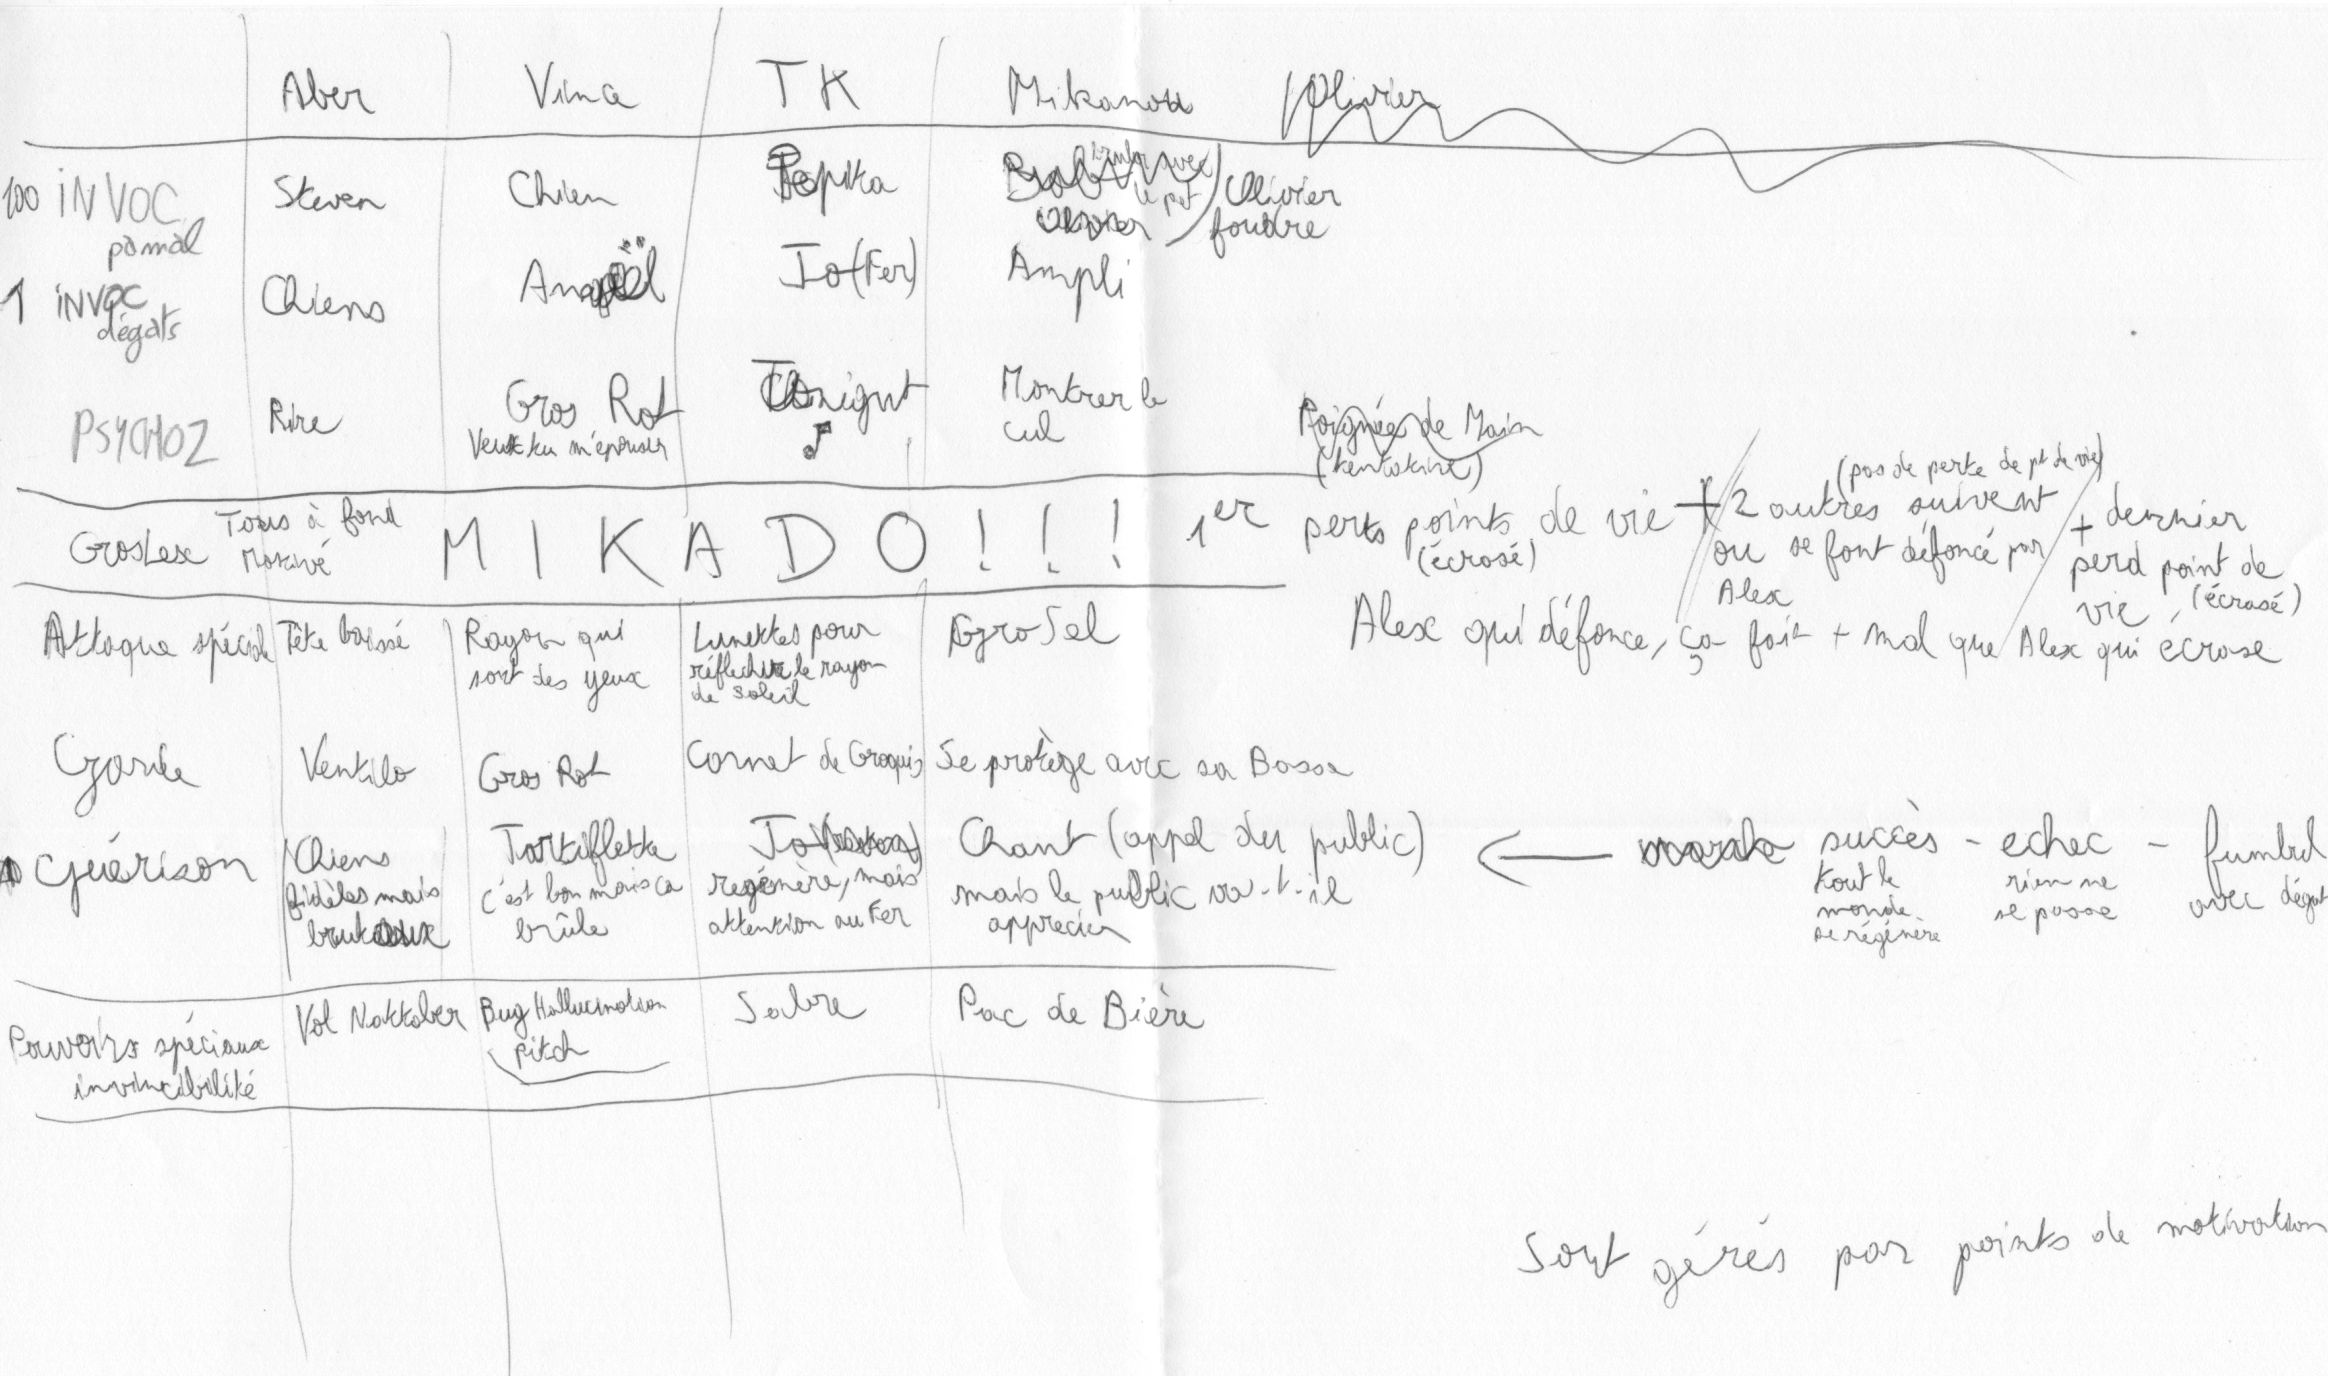 Aber Vina TK Mikanou Olivier
100 INVOC Steven Chien Pepika Olivier
pa mal foudre
1 INVOC Chiens Anaël Jo (Fer) Ampli
dégats
PSYCHOZ Rire Gros Rot Unigut Montrer le
Veux tu m'épouser ♪ cul
Poignées de Main
GrosLex Tous à fond MIKADO!!! 1er perts points de vie + 2 autres suivent + dernier
Motivé (écrasé) (pas de perte de pt de vie)
ou se font défoncé par perd point de
Alex vie (écrasé)
Alex qui défonce, ça fait + mal que Alex qui écrase
Attaque spécial Tête baissé Rayon qui Lunettes pour GroSel
sort des yeux réflechir le rayon
de soleil
Garde Ventilo Gros Rot Cornet de Croquis Se protège avec sa Bosse
Guérison Chiens Tartiflette Jo Chant (appel du public) ← succès - echec - fumbel
fidèles mais c'est bon mais ca regénère, mais mais le public va-t-il tout le rien ne avec dégat
brutaux brûle attention au Fer apprecier monde se passe
se régénère
Pouvoirs spéciaux Vol Nattaber Bug Hallucination Sabre Pac de Bière
invincibilité pitch
Sont gérés par points de motivation